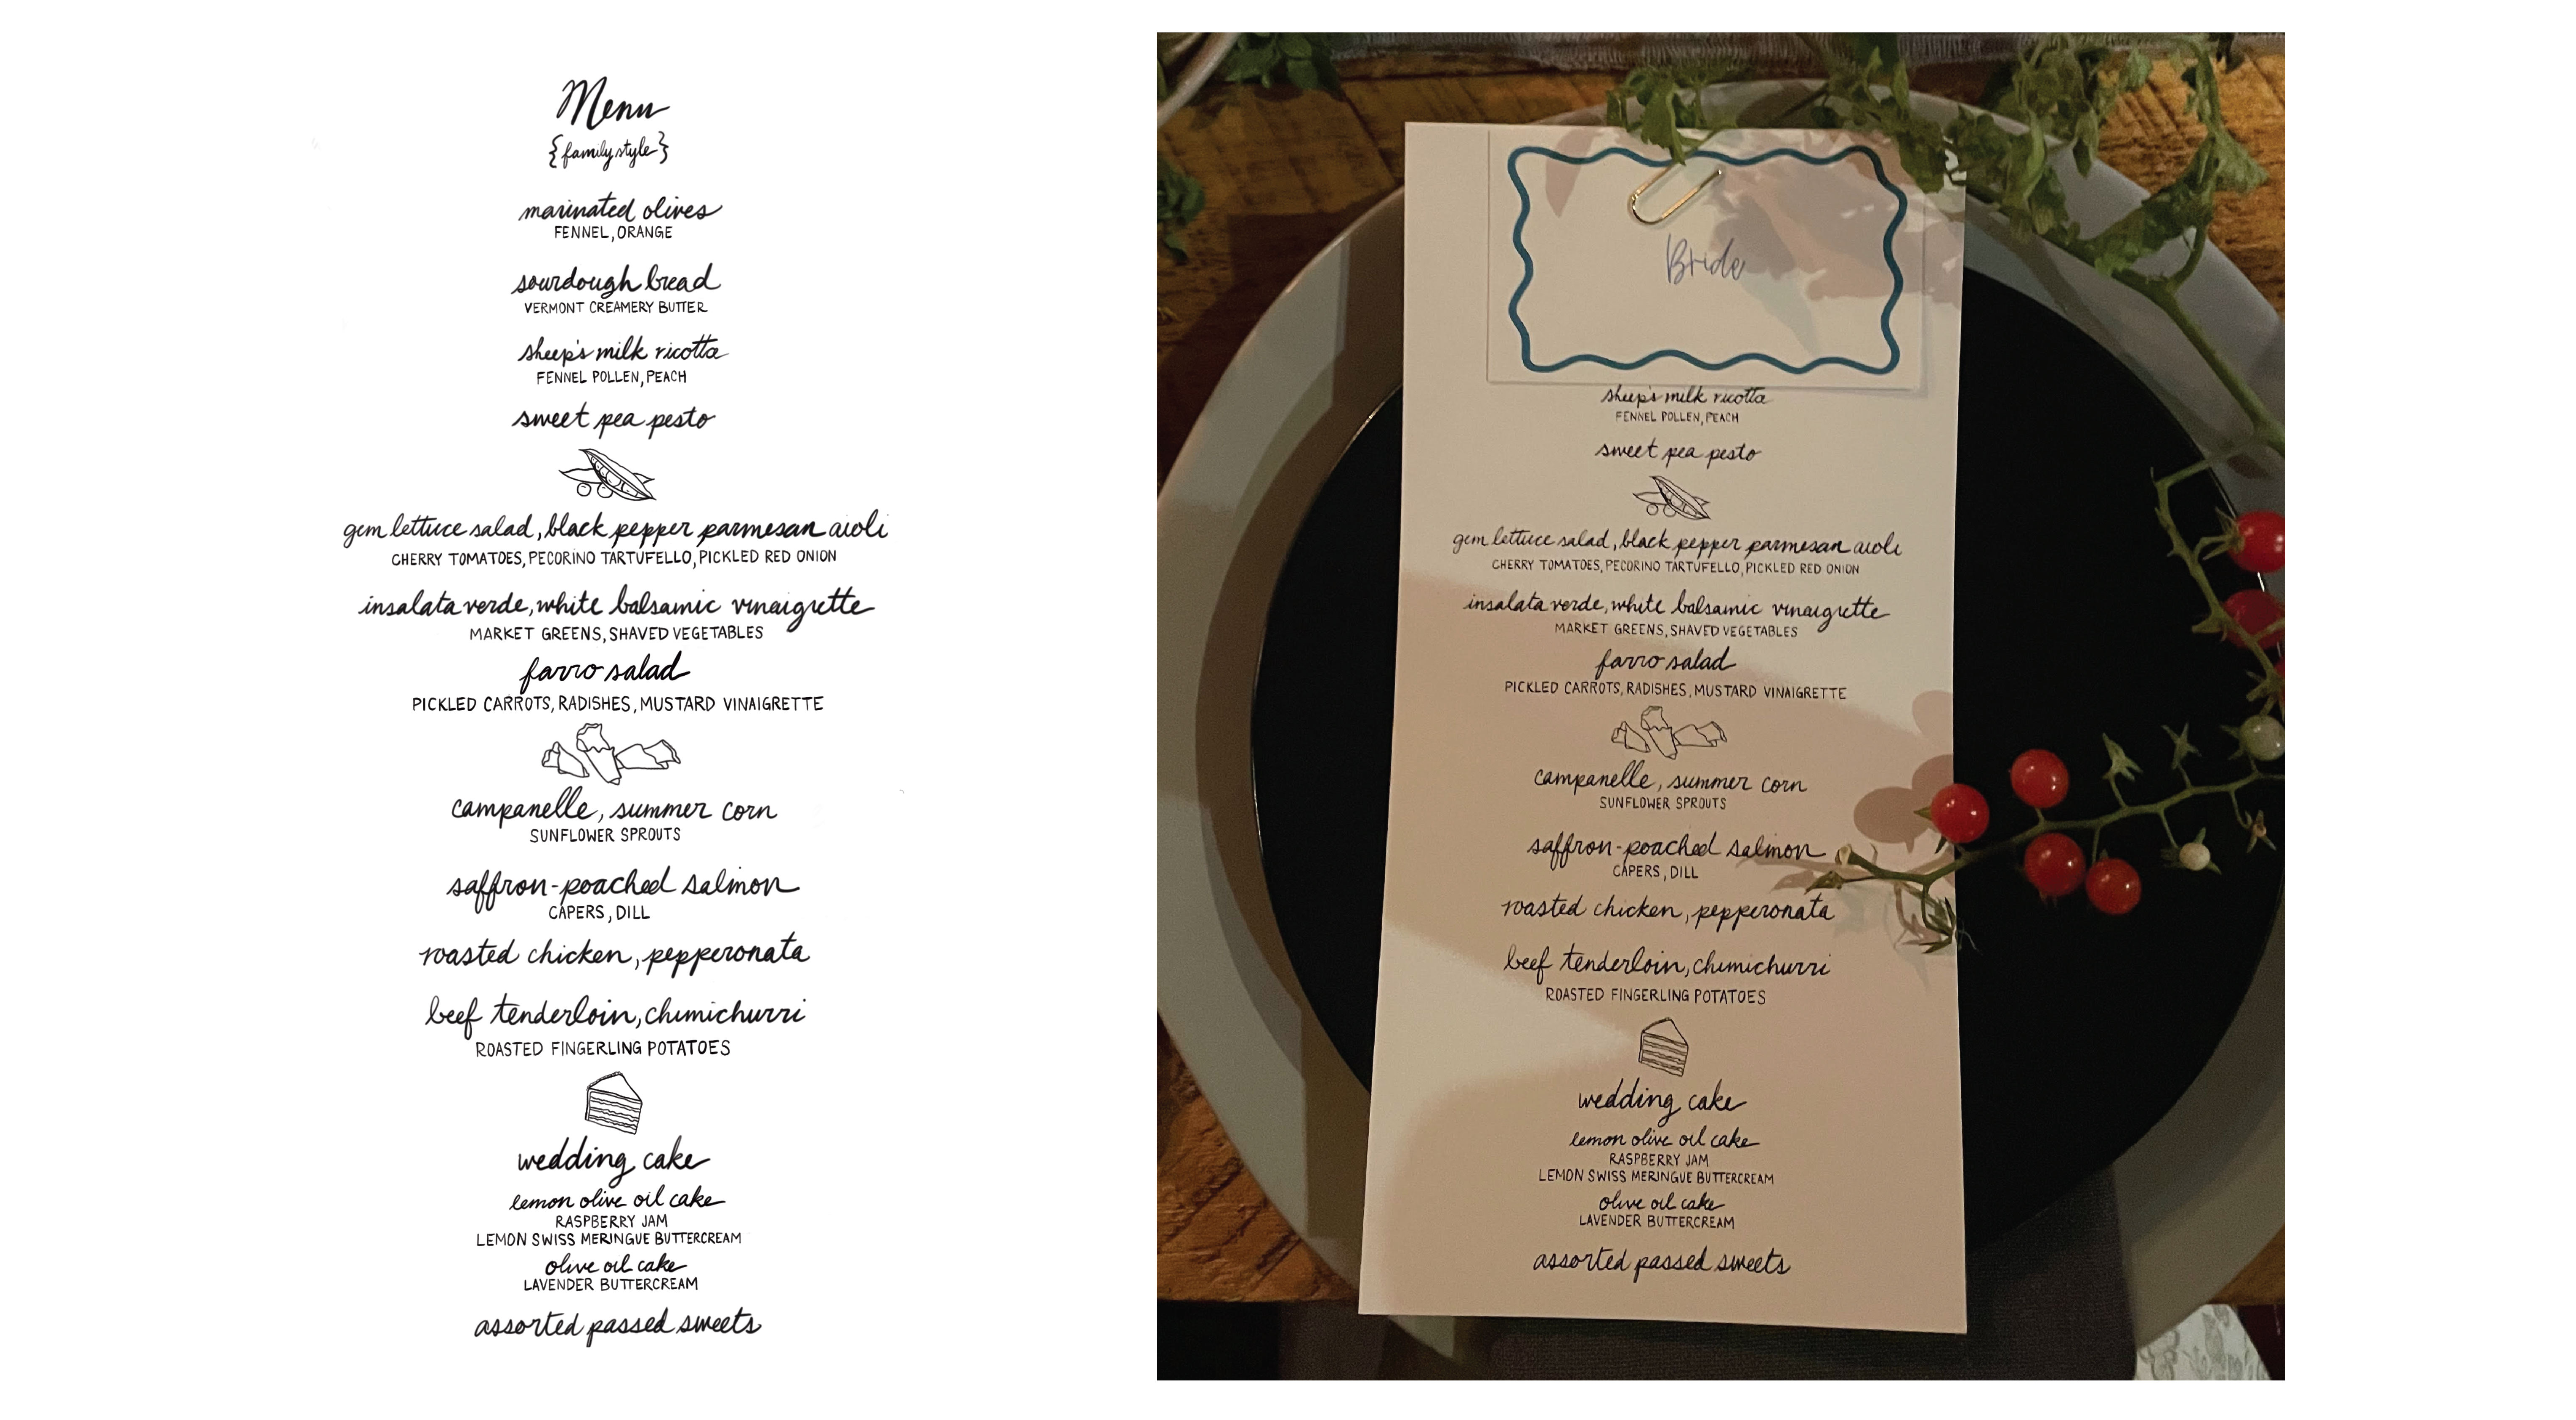 Menu
{family style}
marinated olives
FENNEL, ORANGE
sourdough bread
VERMONT CREAMERY BUTTER
sheep's milk ricotta
FENNEL POLLEN, PEACH
sweet pea pesto
gem lettuce salad, black pepper parmesan aioli
CHERRY TOMATOES, PECORINO TARTUFELLO, PICKLED RED ONION
insalata verde, white balsamic vinaigrette
MARKET GREENS, SHAVED VEGETABLES
farro salad
PICKLED CARROTS, RADISHES, MUSTARD VINAIGRETTE
campanelle, summer corn
SUNFLOWER SPROUTS
saffron-poached salmon
CAPERS, DILL
roasted chicken, pepperonata
beef tenderloin, chimichurri
ROASTED FINGERLING POTATOES
wedding cake
lemon olive oil cake
RASPBERRY JAM
LEMON SWISS MERINGUE BUTTERCREAM
olive oil cake
LAVENDER BUTTERCREAM
assorted passed sweets
Bride
sheep's milk ricotta
FENNEL POLLEN, PEACH
sweet pea pesto
gem lettuce salad, black pepper parmesan aioli
CHERRY TOMATOES, PECORINO TARTUFELLO, PICKLED RED ONION
insalata verde, white balsamic vinaigrette
MARKET GREENS, SHAVED VEGETABLES
farro salad
PICKLED CARROTS, RADISHES, MUSTARD VINAIGRETTE
campanelle, summer corn
SUNFLOWER SPROUTS
saffron-poached salmon
CAPERS, DILL
roasted chicken, pepperonata
beef tenderloin, chimichurri
ROASTED FINGERLING POTATOES
wedding cake
lemon olive oil cake
RASPBERRY JAM
LEMON SWISS MERINGUE BUTTERCREAM
olive oil cake
LAVENDER BUTTERCREAM
assorted passed sweets